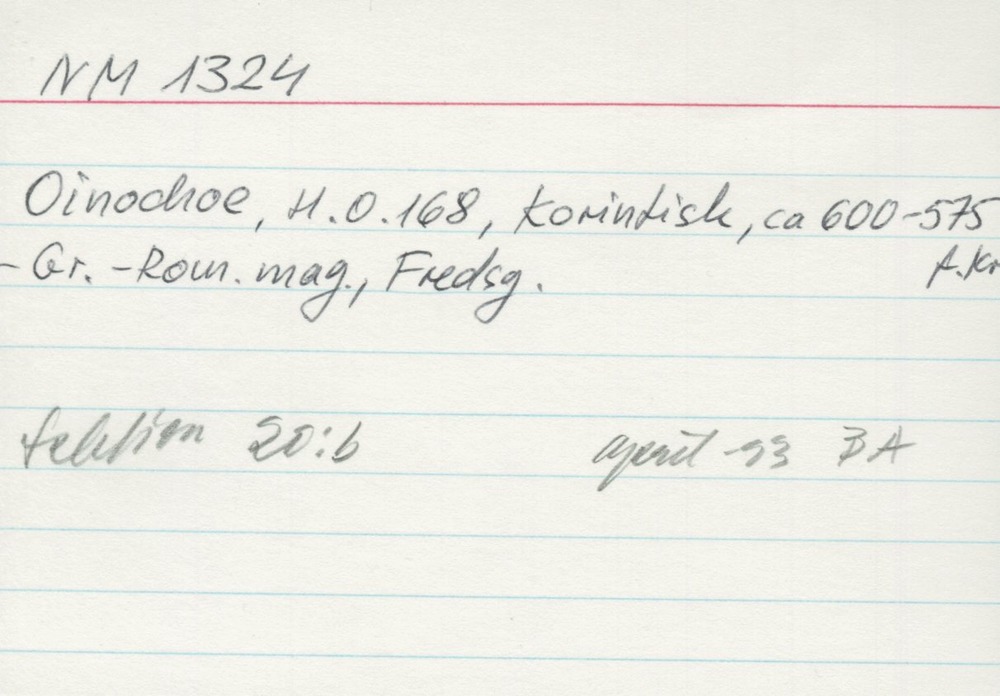 NM 1324
Oinochoe, H.0.168, korintisk, ca 600-575
- Gr.-Rom. mag., Fredsg. A.Kr
sektion 20:b april -93 BA